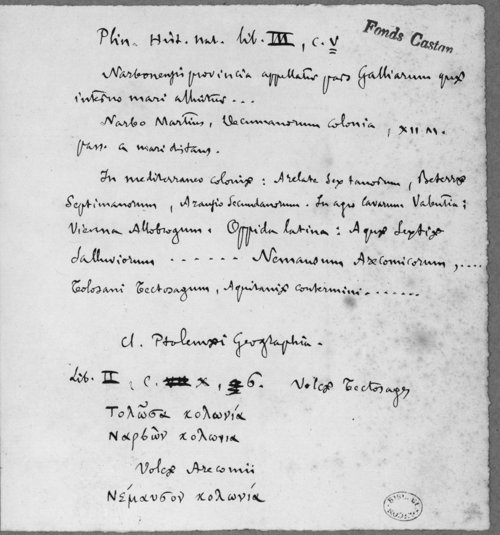 Plin. Hist. nat. lib. III, c. V
Fonds Castan
Narbonensis provincia appellatur pars Galliarum quæ
interno mari alluitur...
Narbo Martius, Decumanorum colonia, XII M.
pass. a mari distans.
In mediterraneo coloniæ : Arelate Sextanorum, Beterræ
Septimanorum, Arausio Secundanorum. In agro Cavarum Valentia ;
Vienna Allobrogum. Oppida latina : Aquæ Sextiæ
Salluviorum ...... Nemausum Arecomicorum, ....
Tolosani Tectosagum, Aquitaniæ contermini.......
Cl. Ptolemæi Geographia.
Lib. II, c. X, 6. Volcæ Tectosages
Τολῶσα κολωνία
Ναρβὼν κολωνια
Volcæ Arecomii
Νέμαυσον κολωνία